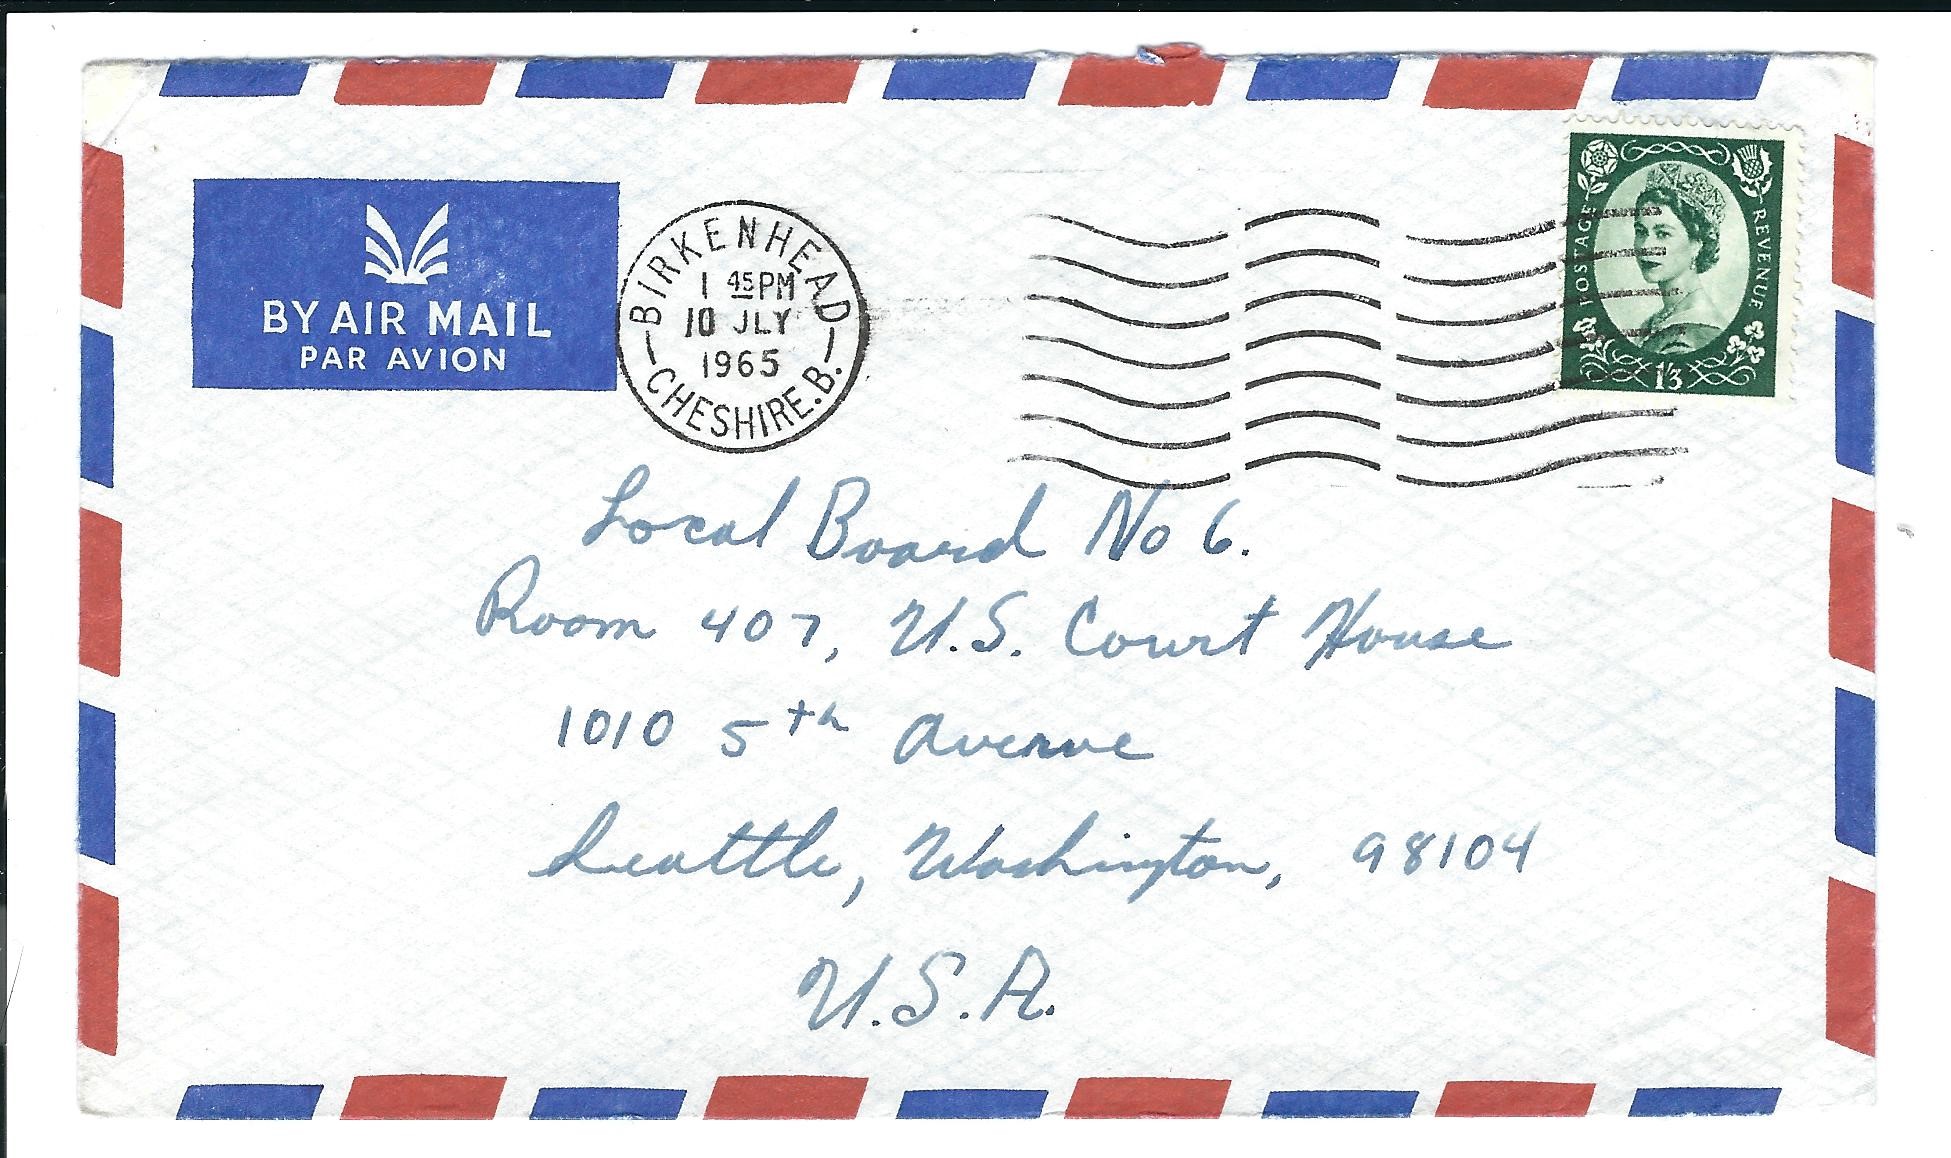 BY AIR MAIL
PAR AVION
BIRKENHEAD
1 45 PM
10 JLY
1965
CHESHIRE.B.
POSTAGE REVENUE
1/3
Local Board No 6.
Room 407, U.S. Court House
1010 5th Avenue
Seattle, Washington, 98104
U.S.A.